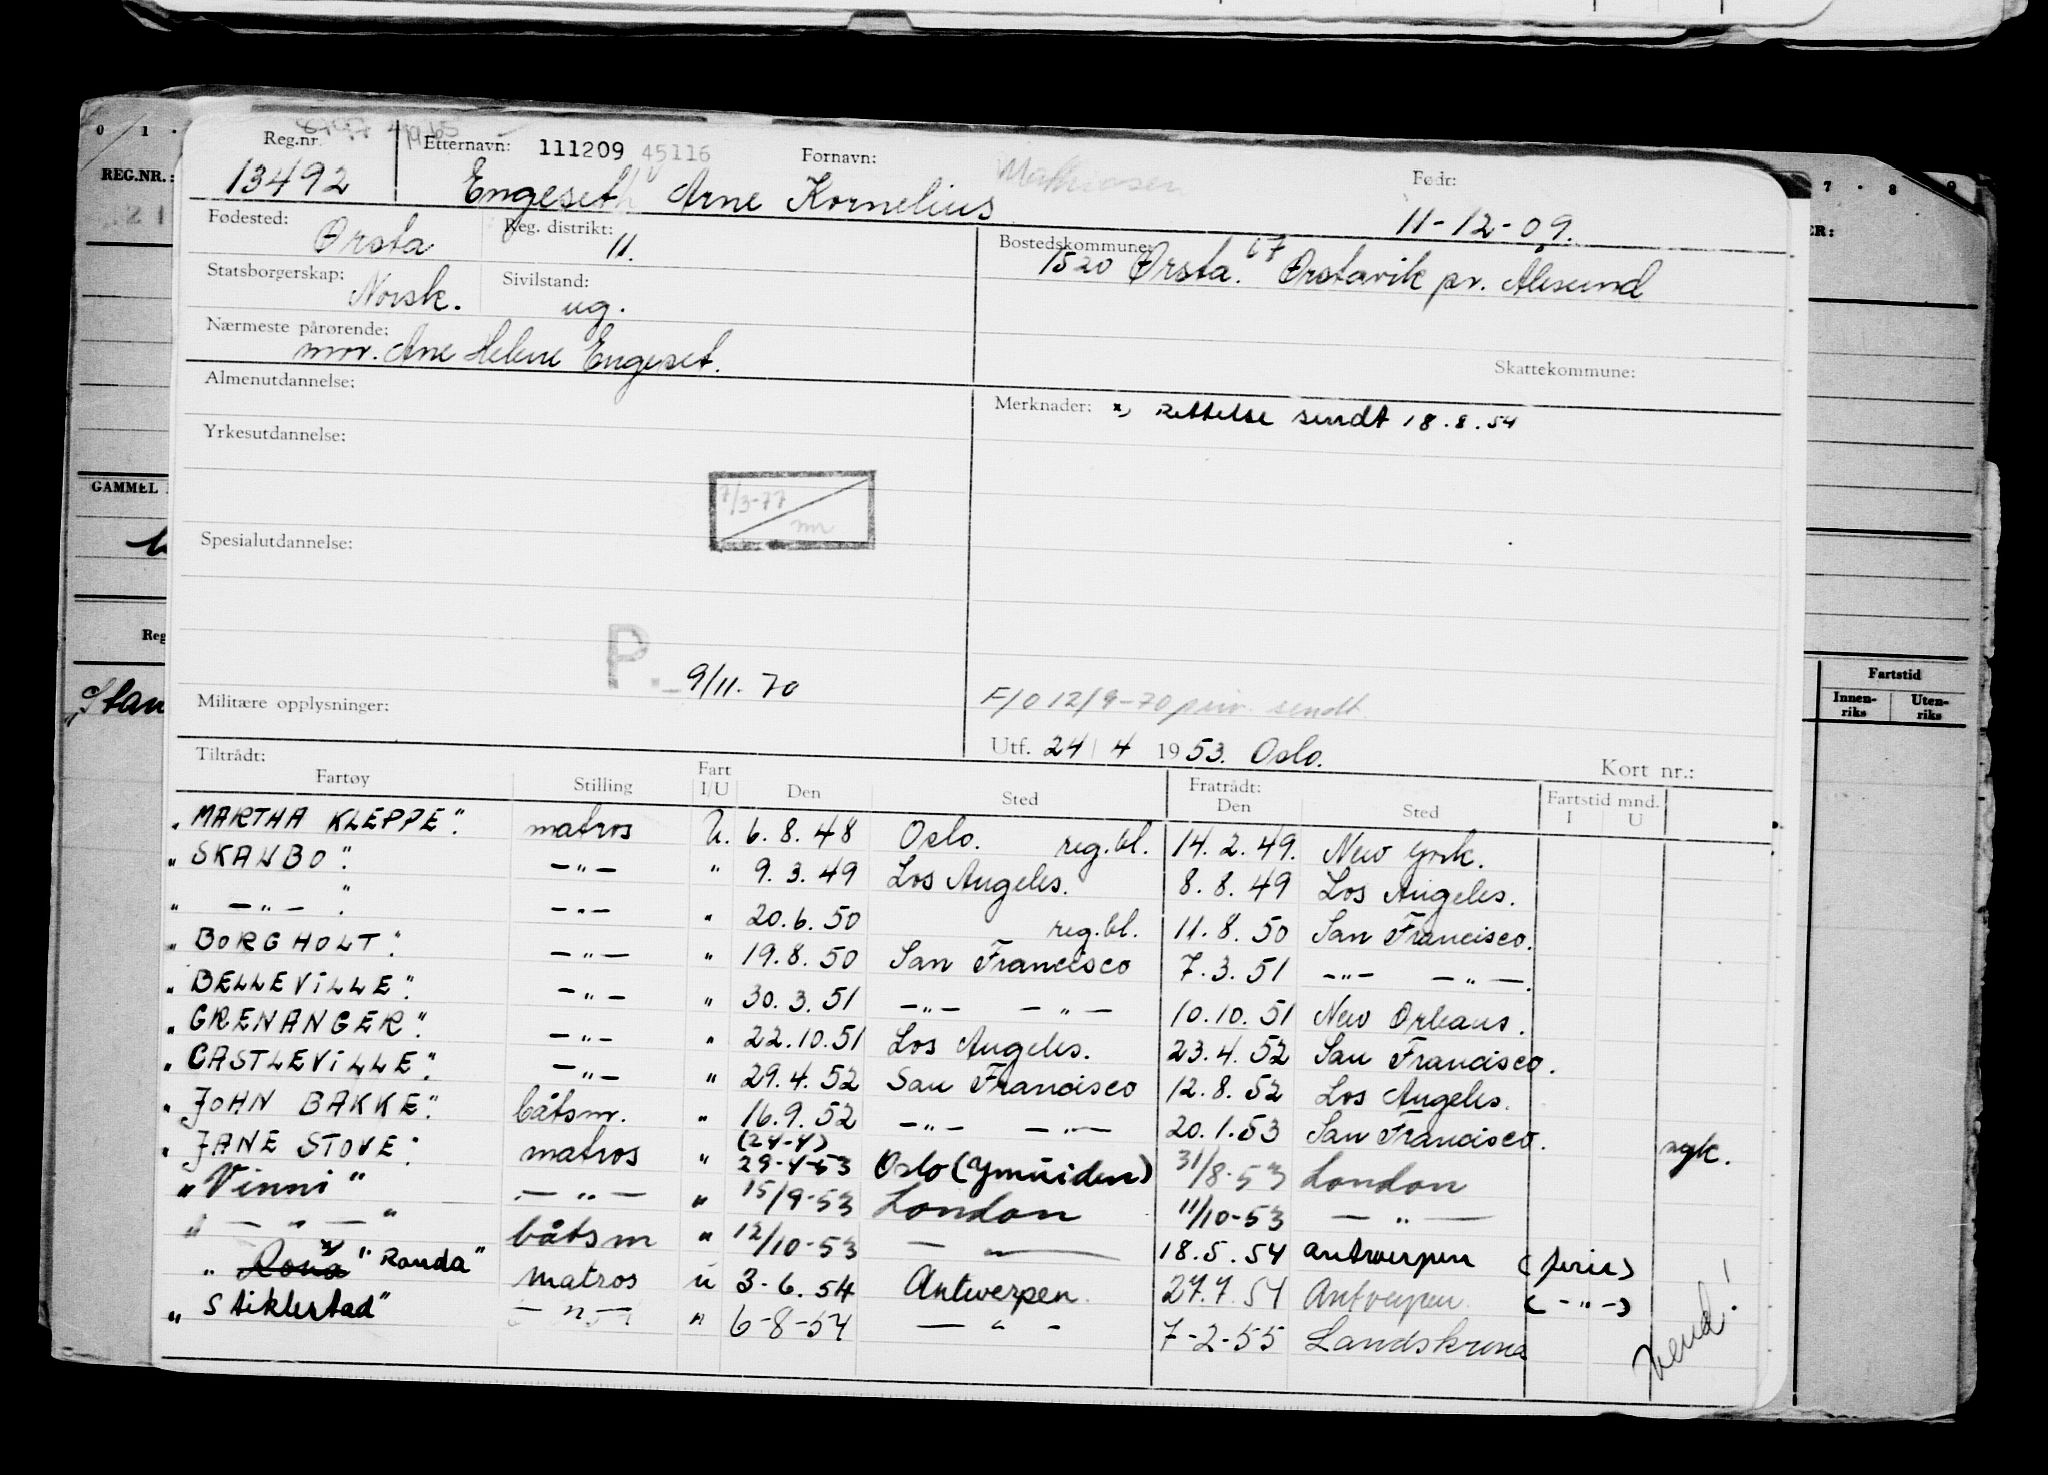 Reg.nr. Etternavn: 111209 45116 Fornavn: Født:
13492 Engeseth Arne Kornelius Mathiasen 11-12-09.
Fødested: Ørsta Reg. distrikt: 11. Bostedskommune: 1520 Ørsta. 67 Ørstavik pr. Ålesund
Statsborgerskap: Norsk. Sivilstand: ug.
Nærmeste pårørende: mor. Ane Helene Engeset. Skattekommune:
Almenutdannelse: Merknader: x) Rettelse sendt 18.8.54
Yrkesutdannelse:
7/3-77
Spesialutdannelse:
P. 9/11.70
Militære opplysninger: F/O 12/9-70 sendt
Utf. 24/4 1953. Oslo. Kort nr.:
Tiltrådt: Fratrådt:
Fartøy Stilling Fart I/U Den Sted Den Sted Fartstid mnd. I U
"MARTHA KLEPPE". matros U. 6.8.48 Oslo. reg.bl. 14.2.49. New York.
"SKANBO". —"— " 9.3.49 Los Angeles. 8.8.49 Los Angeles.
" —"— ". —"— " 20.6.50 reg.bl. 11.8.50 San Francisco.
"BORGHOLT". —"— " 19.8.50 San Francisco 7.3.51 —"— —"—.
"BELLEVILLE". —"— " 30.3.51 —"— —"— 10.10.51 New Orleans.
"GRENANGER". —"— " 22.10.51 Los Angeles. 23.4.52 San Francisco.
"CASTLEVILLE". —"— " 29.4.52 San Francisco 12.8.52 Los Angeles.
"JOHN BAKKE". båtsm. " 16.9.52 —"— —"— 20.1.53 San Francisco. syk.
"JANE STOVE". matros " (24-4) 29-4-53 Oslo (Ymuiden) 31/8-53 London
"Vinni" —"— " 15/9-53 London 11/10-53 —"—
" —"— " båtsm " 12/10-53 —"— 18.5.54 Antwerpen (ferie)
" Rona x) "Randa" matros u 3-6.54 Antwerpen. 27.7.54 Antwerpen. (—"—)
"Stiklestad" —"— " 6-8-54 —"— 7-2-55 Landskrona
Vend!
0 1
REG.NR.:
21
GAMMEL
Reg
"Stan
7 · 8 · 9
ER:
Fartstid
Innenriks Utenriks